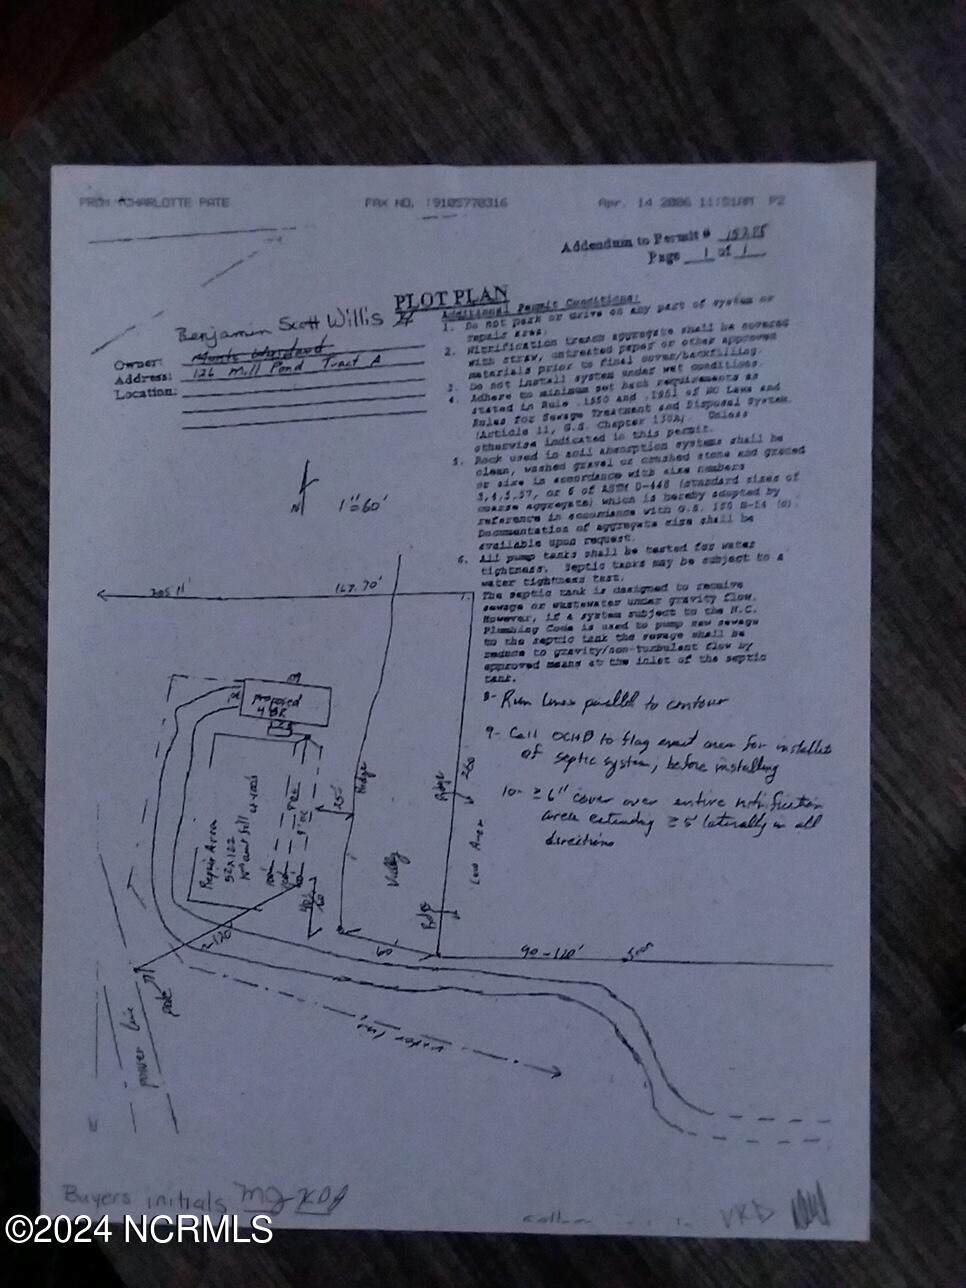 FROM : CHARLOTTE PATE FAX NO. : 9105770316 Apr. 14 2006 11:51AM P2
Addendum to Permit #
Page 1 of 1
PLOT PLAN
Benjamin Scott Willis
Owner:
Address: 126 Mill Pond Tract A
Location:
Additional Permit Conditions:
1. Do not park or drive on any part of system or
repair area.
2. Nitrification trench aggregate shall be covered
with straw, untreated paper or other approved
materials prior to final cover/backfilling.
3. Do not install system under wet conditions.
4. Adhere to minimum set back requirements as
stated in Rule .1950 and .1951 of NC Laws and
Rules for Sewage Treatment and Disposal System.
(Article 11, G.S. Chapter 130A). Unless
otherwise indicated in this permit.
5. Rock used in soil absorption systems shall be
clean, washed gravel or crushed stone and graded
or size in accordance with size numbers
3,4,5,57, or 6 of ASTM D-448 (standard sizes of
coarse aggregate) which is hereby adopted by
reference in accordance with G.S. 150 B-14 (c).
Documentation of aggregate size shall be
available upon request.
6. All pump tanks shall be tested for water
tightness. Septic tanks may be subject to a
water tightness test.
7. The septic tank is designed to receive
sewage or wastewater under gravity flow.
However, if a system subject to the N.C.
Plumbing Code is used to pump raw sewage
to the septic tank the sewage shall be
reduce to gravity/non-turbulent flow by
approved means at the inlet of the septic
tank.
8- Run lines parallel to contour
9- Call OCHD to flag exact area for installation
of septic system, before installing
10- ≥6" cover over entire nitrification
area extending ≥5' laterally in all
directions
N
1"=60'
205.11'
167.70'
Proposed
4 BR
Repair Area
52x122
Ridge
Valley
Ridge
260
Low Area
Ridge
60'
90-110'
power line
pole
water line
Buyers initials MJ KDJ
VKD
©2024 NCRMLS